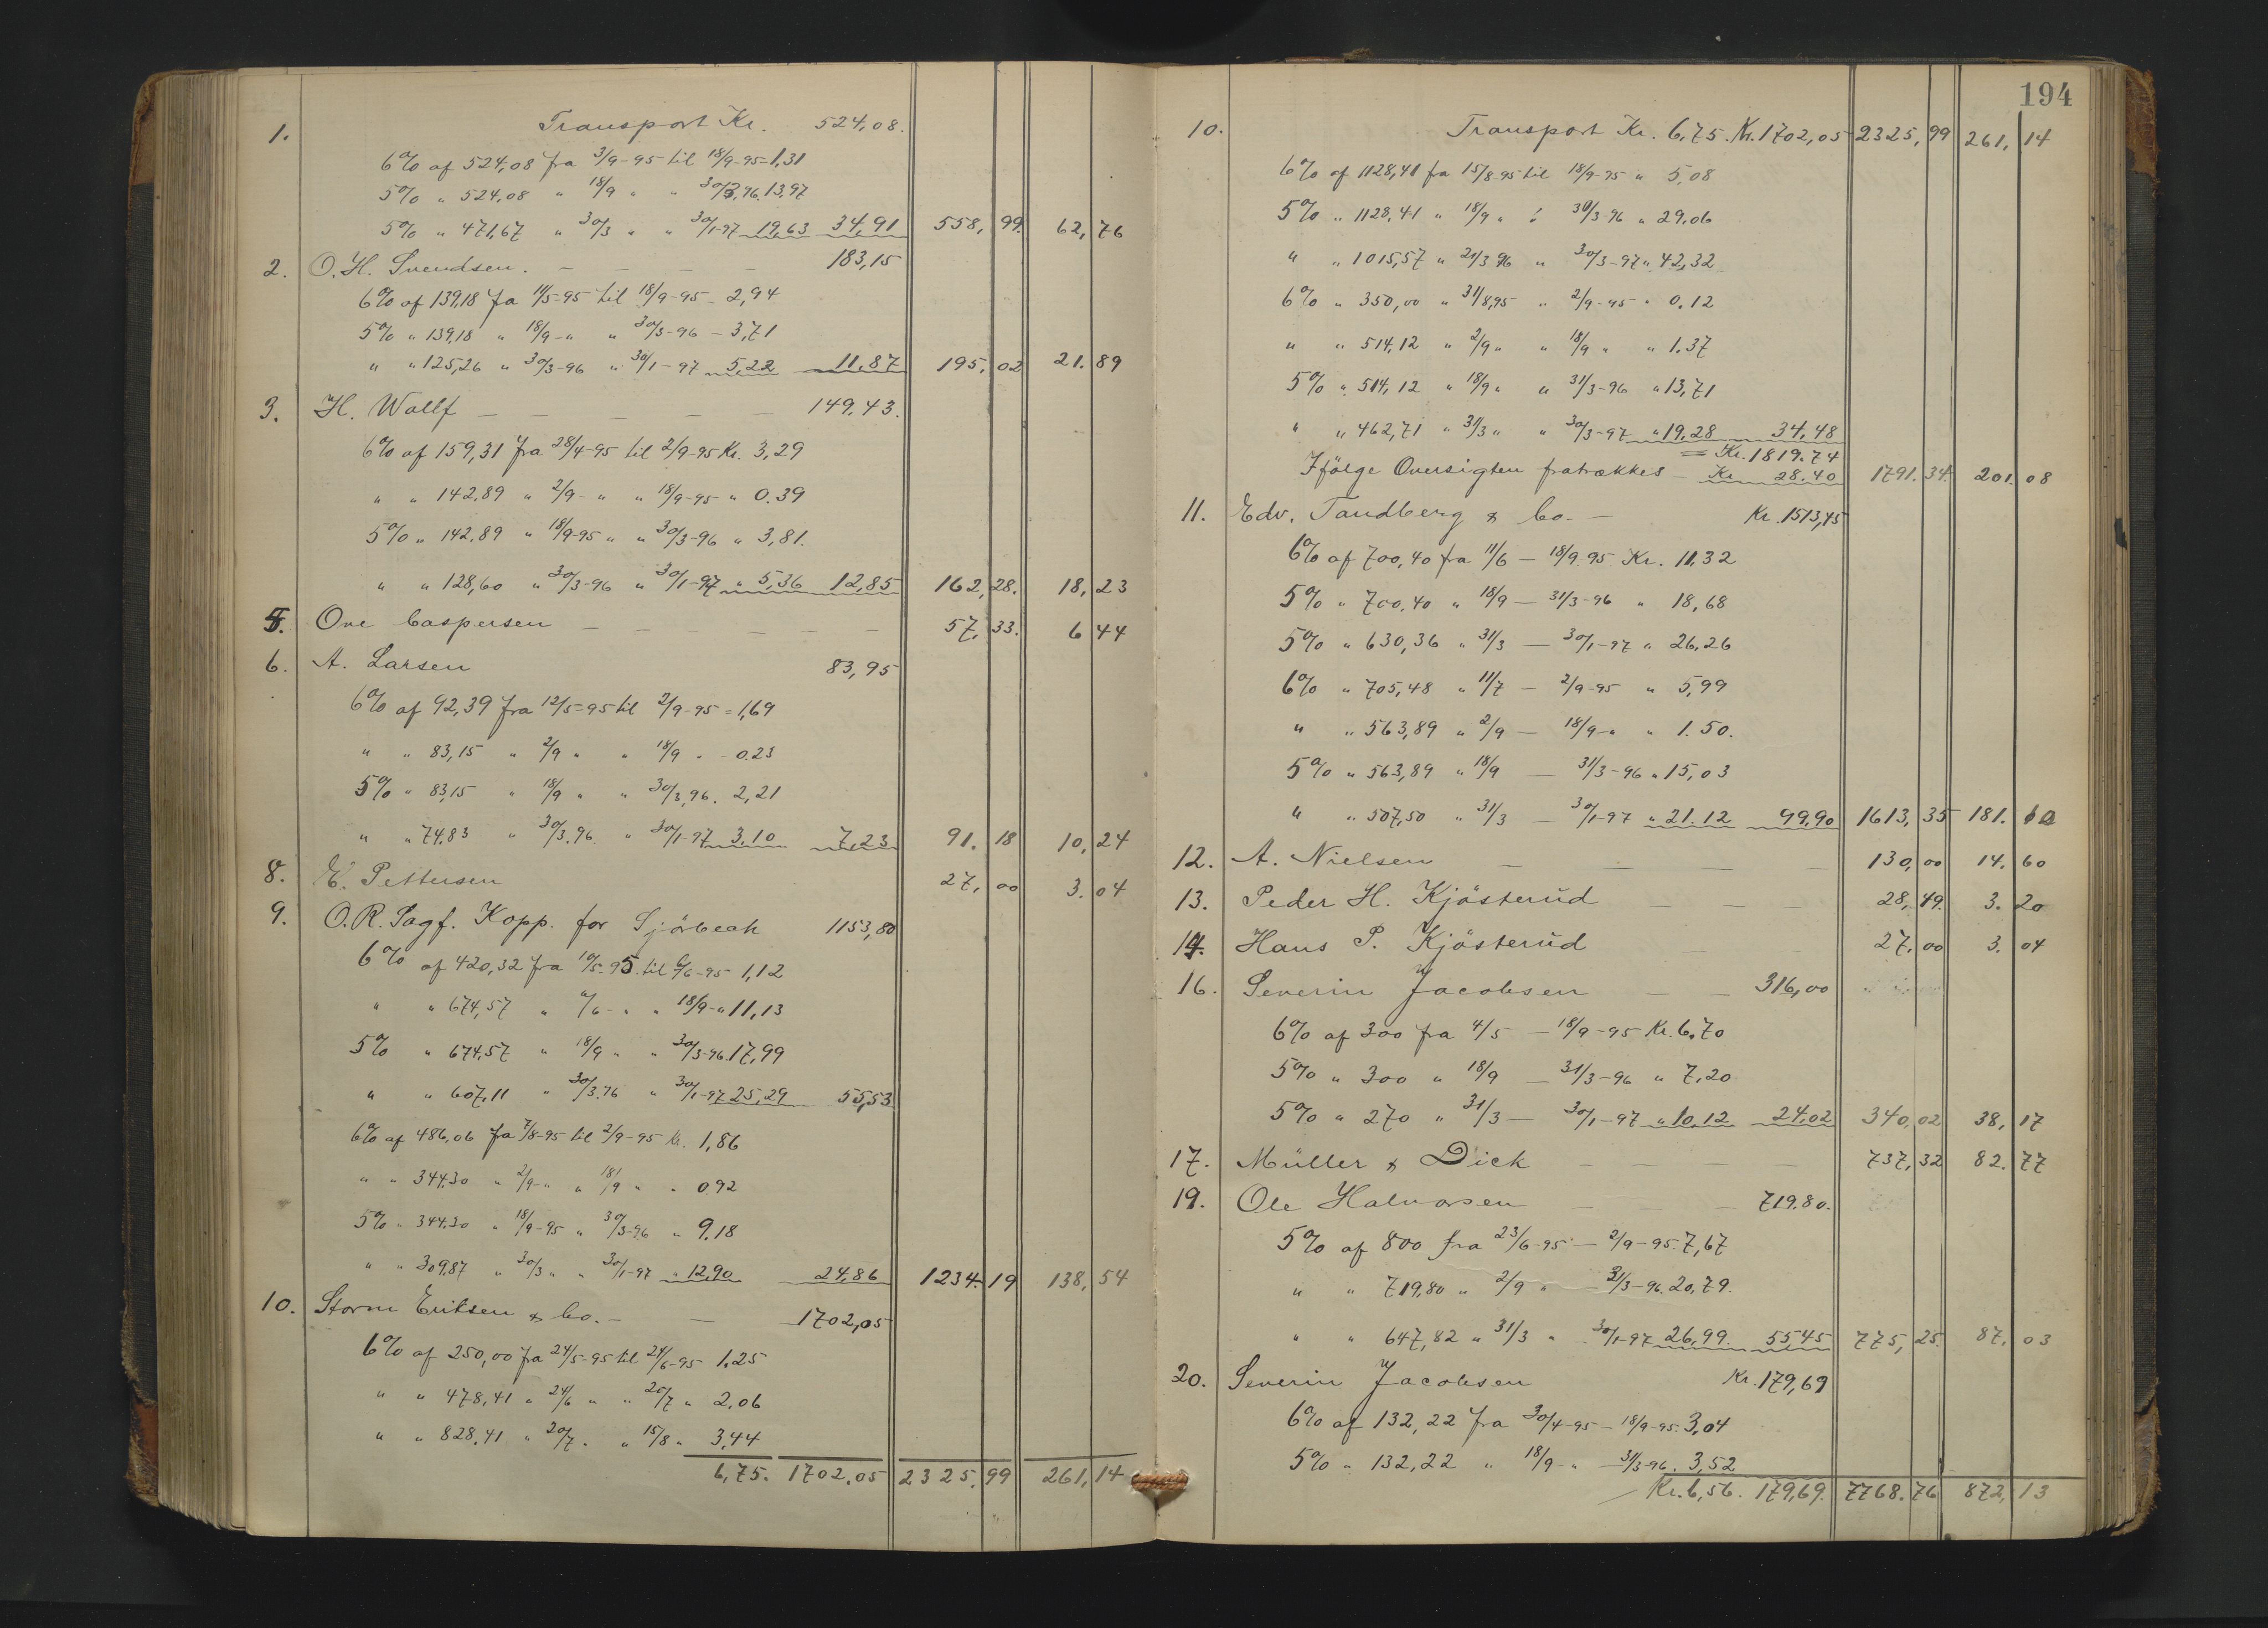 1. Transport Kr. 524,08.
6% af 524,08 fra 3/9-95 til 18/9-95-1,31
5% " 524,08 " 18/9 " " 30/3,96. 13,97
5% " 471,67 " 30/3 " " 30/1-97 19,63 34,91 558,99. 62,76
2. O. H. Svendsen. — — — — 183,15
6% af 139,18 fa 11/5-95 til 18/9-95 - 2,94
5% " 139,18 " 18/9 - " " 30/3-96 - 3,71
" " 125,26 " 30/3-96 " 30/1-97 5,22 11,87 195,02 21.89
3. H. Wollf — — — — — 149,43.
6% af 159,31 fra 28/4-95 til 2/9-95 Kr. 3,29
" " 142,89 " 2/9 - " " 18/9-95 " 0.39
5% " 142,89 " 18/9-95 " " 30/3-96 " 3,81.
" " 128,60 " 30/3-96 " 30/1-97 " 5,36 12,85 162,28. 18,23
5. Ove Caspersen — — — — — — 57,33. 6 44
6. A. Larsen 83,95
6% af 92,39 fra 12/5-95 til 2/9-95 = 1,69
" " 83,15 " 2/9 " " 18/9 " - 0.23
5% " 83,15 " 18/9 " " 30/3,96. 2,21
" " 74,83 " 30/3.96. " 30/1-97 3,10 7,23 91.18 10,24
8. E. Pettersen 27,00 3.04
9. O. R. Sagf. Kopp. for Sjörbeck 1153,80
6% af 420,32 fra 10/5-95. til 6/6-95 - 1,12
" " 674,57 " 6/6 - " " 18/9 - " 11,13
5% " 674,57 " 18/9 " " 30/3-96. 17,99
" " 607,11 " 30/3.96 " 30/1-97 25,29 55,53
6% af 486,06 fa 7/8-95 til 2/9-95 Kr. 1,86
" " 344.30 " 2/9 - " " 18/9 " " 0.92
5% " 344.30 " 18/9-95 " 30/3-96 " 9.18
" " 309,87 " 30/3 " " 30/1-97 " 12,90 24,86 1234.19 138,54
10. Storm Eriksen & Co. — — 1702,05
6% af 250,00 fra 24/5-95 til 24/6-95 1.25
" " 478,41 " 24/6 " " 20/7 " 2.06
" " 828.41 " 20/7 " " 15/8 " 3,44
6,75. 1702.05 2325.99 261,14
194
10. Transport Kr. 6,75. Kr. 1702,05 2325,99 261,14
6% af 1128,41 fra 15/8 95 til 18/9-95 " 5,08
5% " 1128,41 " 18/9 " " 30/3-96 " 29,06
" " 1015,57 " 21/3 96 " 30/3-97 " 42,32
6% " 350,00 " 31/8,95 " 2/9-95 " 0.12
" " 514,12 " 2/9 " " 18/9 " " 1.37
5% " 514,12 " 18/9 " " 31/3-96 " 13,71
" " 462,71 " 31/3 " " 30/3-97 " 19,28 34,48
= Kr. 1819.74
Ifölge Oversigten fratrækkes — Kr 28.40 1791.34. 201.08
11. Edv. Tandberg & Co. — Kr. 1513,45
6% af 700,40 fra 11/6 — 18/9.95 Kr. 11,32
5% " 700,40 " 18/9 — 31/3-96 " 18,68
5% " 630,36 " 31/3 — 30/1-97 " 26,26
6% " 705,48 " 11/7 — 2/9-95 " 5,99
" " 563,89 " 2/9 — 18/9 - " " 1.50.
5% " 563,89 " 18/9 — 31/3-96 " 15,03
" " 507,50 " 31/3 — 30/1-97 " 21.12 99,90 1613,35 181.
12. A. Nielsen — — — — 130,00 14.60
13. Peder H. Kjösterud — — — 28,49. 3.20
14. Hans P. Kjösterud — — 27,00 3.04
16. Severin Jacobsen — — 316,00
6% af 300 fra 4/5 — 18/9-95 Kr. 6.70
5% " 300 " 18/9 — 31/3-96 " 7.20
5% " 270 " 31/3 — 30/1-97 " 10.12 24,02 340,02 38,17
17. Müller & Dick — — — — 737,32 82.77
19. Ole Halvorsen — — — 719.80.
5% af 800 fra 23/6-95 — 2/9-95. 7,67
" " 719,80 " 2/9 " — 31/3-96. 20,79.
" " 647,82 " 31/3 " — 30/1-97 26,99. 55,45 775,25. 87,03
20. Severin Jacobsen Kr. 179,69
6% af 132,22 fra 30/4-95 — 18/9-95. 3,04
5% " 132,22 " 18/9 - " — 31/3-96. 3,52
Kr. 6,56. 179,69. 7768.76 872,13